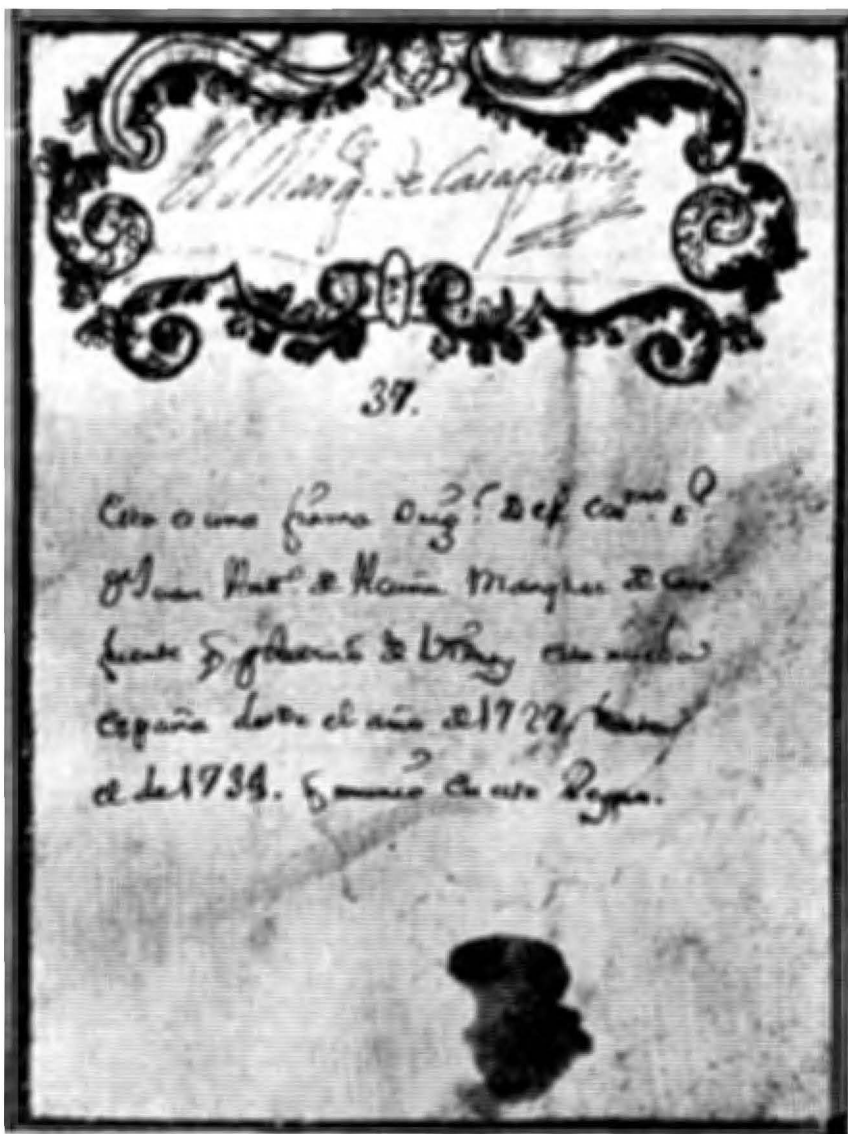 El Marq.es de Casafuerte
37.
Esta es una firma Orig.l Del
Juan Ant.o de Acuña Marques de Casa
fuerte q governó de Virrey esta nueva
españa desde el año de 1722, hasta
el de 1734. q murió en esta